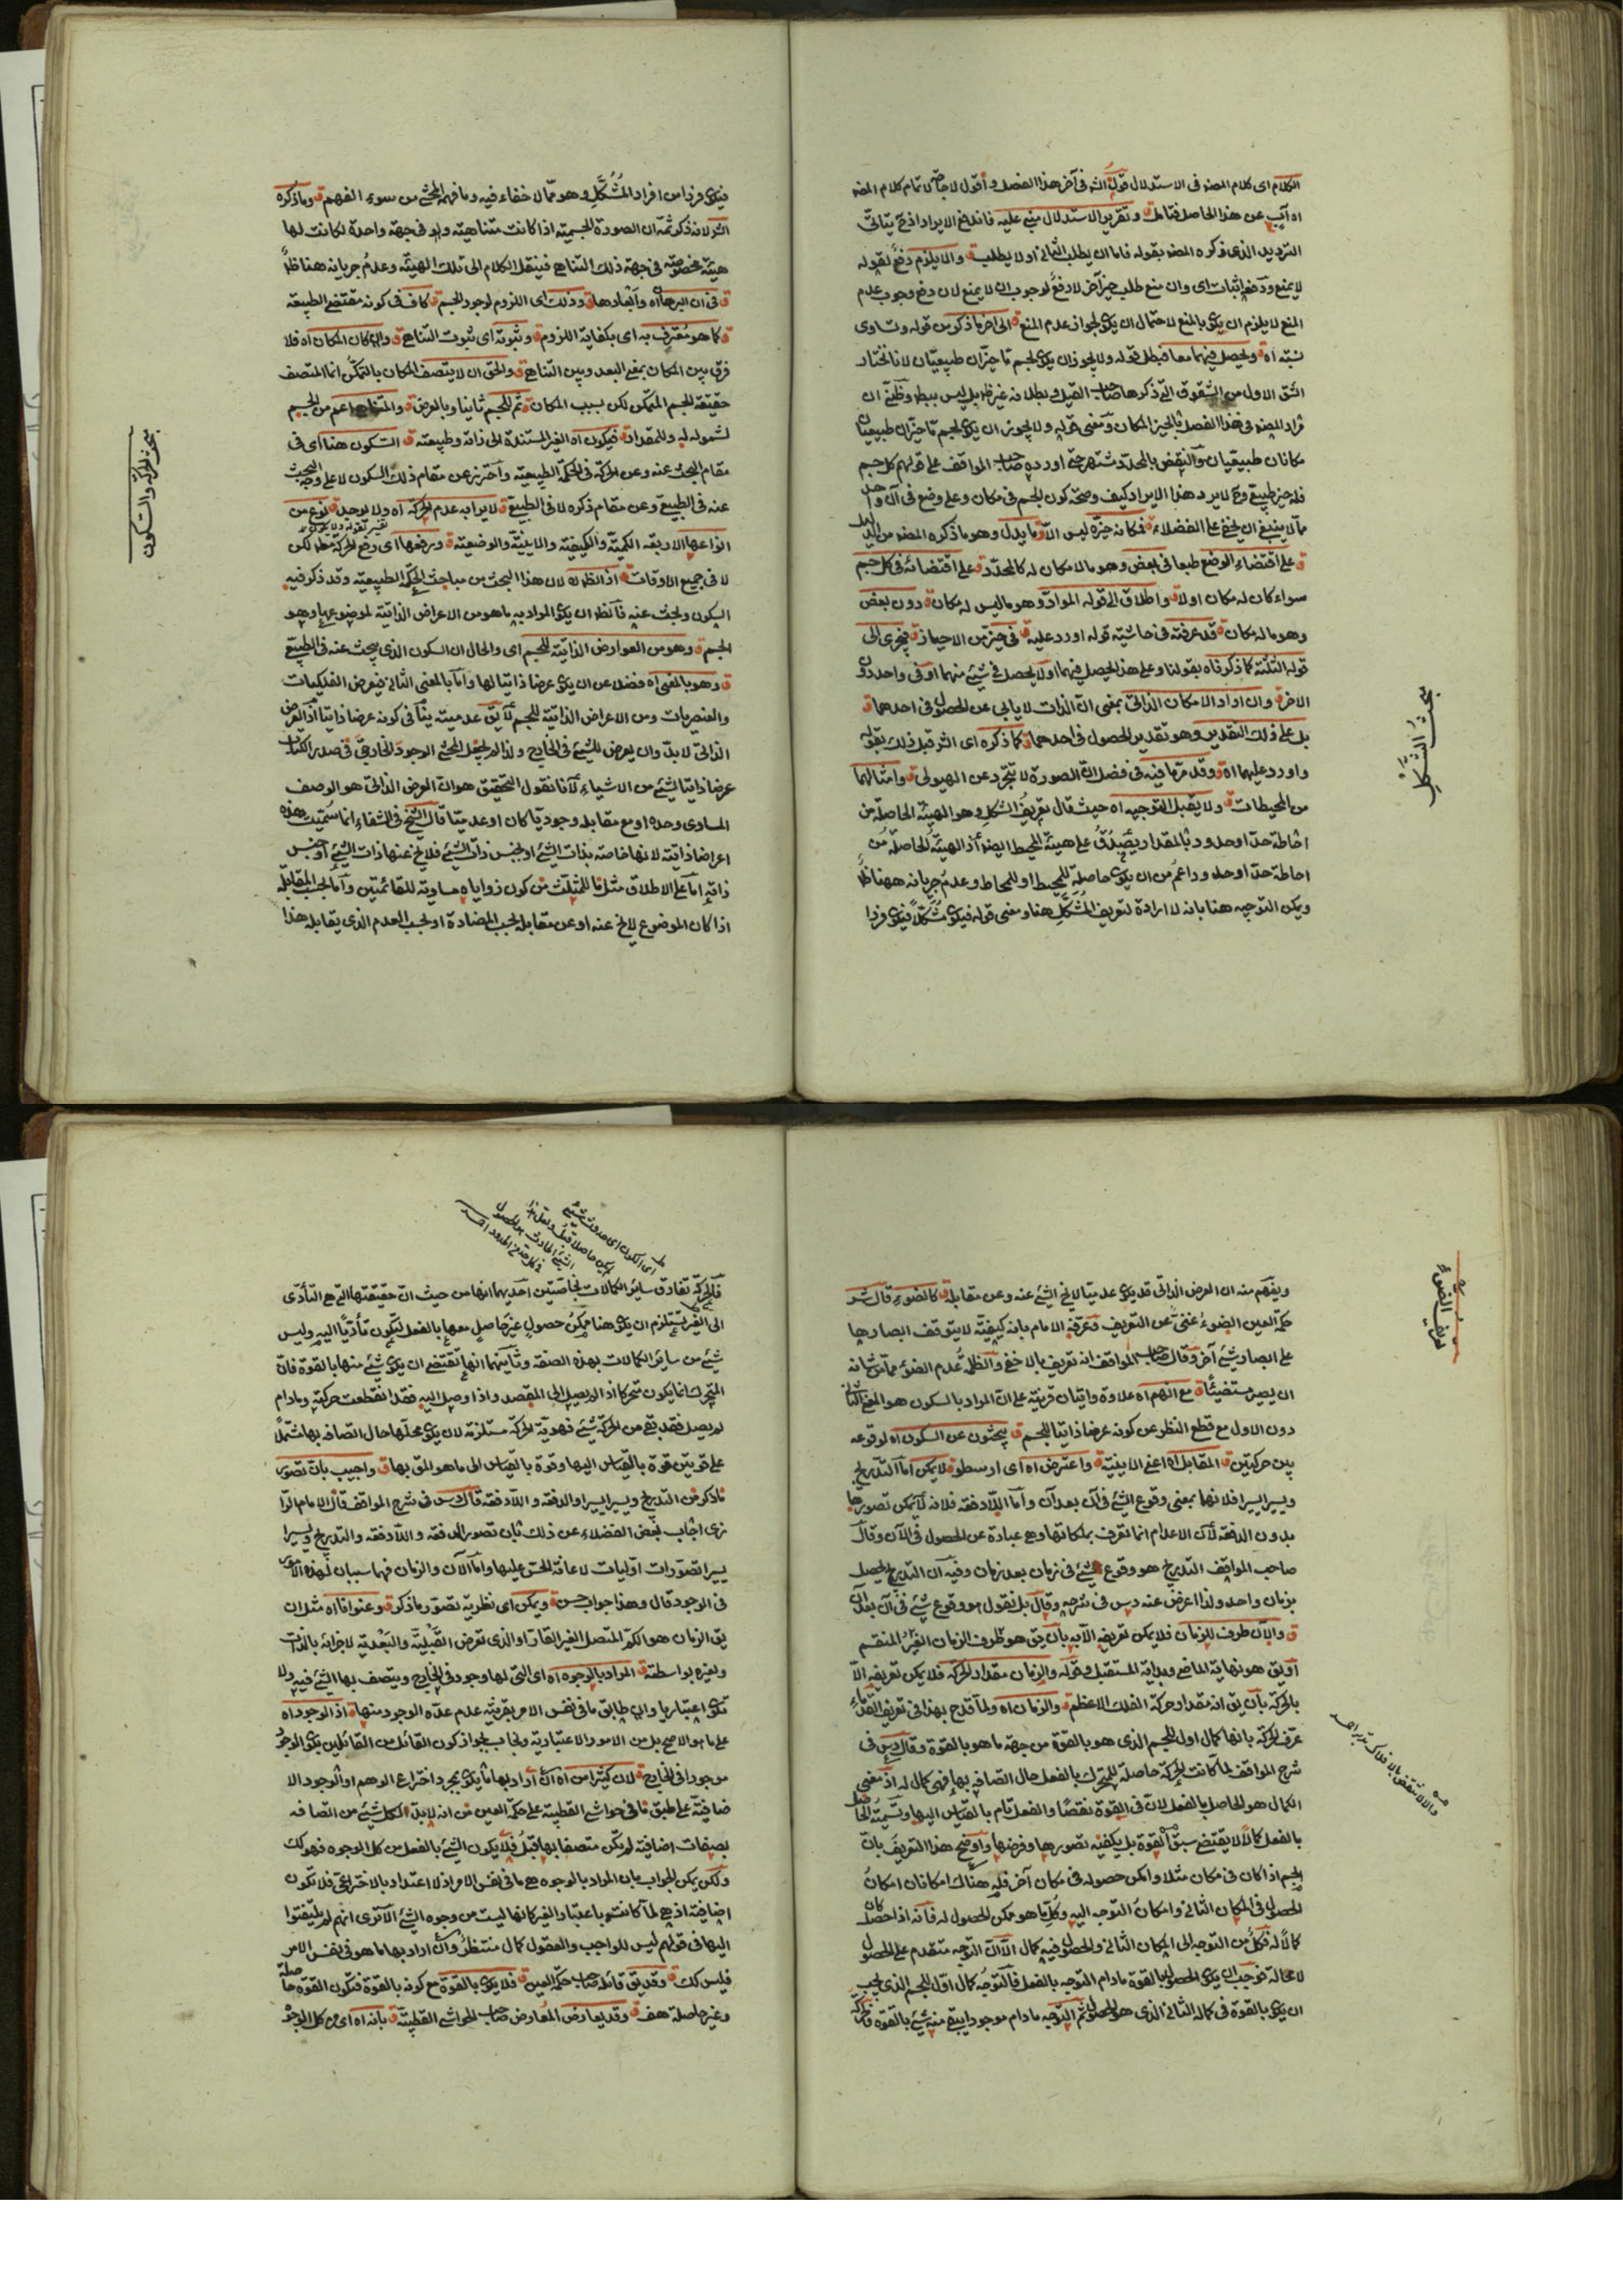 الكلام اى كلام المصنف فى الاستدلال قوله الشه فى آخر هذا الفصل و أقول لا حاصل لا تمام كلام المصه
اه آب عن هذا الحاصل فتأمل ق وتقرير الاستدلال مبنى عليه فاندفع الايراد اذ ح يتأتى
الترديد الذى ذكره المصه بقوله فاما ان يطلب الثانى اولا يطلب ق والا يلزم دفع لقوله
لا يمنع و دفع اثبات اى وان منع طلب حيز آخر لا دفع لوجوب ان لا يمنع لان دفع وجوب عدم
المنع لا يلزم ان يكون بالمنع لاحتمال ان يكون لجواز عدم المنع ق الى اخر ما ذكر من قوله وتساوى
نسبته اه ق ويحصل فيهما معا فبطل قوله ولا يجوز ان يكون لجسم ما حيزان طبيعيان لانا نختار
الشق الاول من الشقوق التى ذكرها صاحب القيل و بطلانه غير ظ بل ليس ببط وظنى ان
مراد المصه فى هذا الفصل بالحيز المكان ومعنى قوله ولا يجوز ان يكون لجسم ما حيزان طبيعيان
مكانان طبيعيان والنقض بالمحدد مشتهر حتى اورده صاحب المواقف على قولهم كل جسم
فله حيز طبيعى و ح لا يرد هذا الايراد كيف وصحة كون الجسم فى مكان وعلى وضع فى آن واحد
مما لا ينبغى ان يخفى على الفضلاء ق فمكانه حيزه ليس الا ق ما يدل وهو ما ذكره المصه من الدليل
ق على اقتضاء الوضع طبعا فى بعض وهو ما لا مكان له كالمحدد ق على اقتضائه فى كل جسم
سواء كان له مكان اولا ق واطلاق الى قوله المواد وهو ما ليس له مكان ق دون بعض
وهو ما له مكان ق قد عرفته فى حاشية قوله اورد عليه ق فى حيز من الاحياز ق فيجرى الى
قوله الثلثة كما ذكرناه بقولنا وعلى هذا يحصل فيهما او لا يحصل فى شئ منهما او فى واحد دون
الاخر ق وان اراد الامكان الذاتى بمعنى ان الذات لا يابى عن الحصول فى احدهما ق
بل على ذلك التقدير وهو تقدير الحصول فى احدهما ق كما ذكره اى الشه قبل ذلك بقوله
واورد عليهما اه ق وقد مر ما فيه فى فصل ان الصورة لا تتجرد عن الهيولى ق وامثالهما
من المحيطات ق ولا يقبل التوجيه اه حيث قال تعريف الشكل وهو الهيئة الحاصلة من
احاطة حد او حدود بالمقدار يصدق على هيئة المحيط ايضا اذ الهيئة الحاصلة من
احاطة حد او حدود اعم من ان يكون حاصلة للمحيط او للمحاط وعدم جريانه ههنا ظ
ويمكن التوجيه هنا بانه لا ارادة لتعريف المشكل هنا ومعنى قوله فيكون مشكلا فيكون فردا
بحث الشكل
فيكون فردا من افراد المشكل وهو مما لا خفاء فيه وما فهم المحشى من سوء الفهم ق وما ذكره
الشه لانه ذكر ثمة ان الصورة الجسمية اذا كانت متناهية ولو فى جهة واحدة لكانت لها
هيئة مخصوصة فى جهة ذلك التناهى فينقل الكلام الى تلك الهيئة وعدم جريانه هنا ظ
ق فى ان البرهان اه وابعادها ق وذلك اى اللزوم لوجود الجسم ق كاف فى كونه مقتضى الطبيعة
ق كما هو معترف به اى بكفاية اللزوم ق وثبوته اى ثبوت التناهى ق وان كان المكان اه فلا
فرق بين المكان بمعنى البعد وبين التناهى ق والحق ان لا يتصف المكان بالتمكن انما المتصف
حقيقة الجسم المتمكن لكن بسبب المكان ق ثم للجسم ثانيا وبالعرض ق والتناهى اعم من الجسم
لشموله له وللمقدار ق فيكون اه الغير المستندة الى ذاته وطبيعته ق السكون هنا اى فى
مقام البحث عنه وعن الحركة فى الحكمة الطبيعية واحترز عن مقام ذلك السكون لا على وجه البحث
عنه فى الطبيعى وعن مقام ذكره لا فى الطبيعى ق لا يراد به عدم الحركة اه ولا يوجد ق نوع من
انواعها الاربعة الكمية والكيفية والاينية والوضعية ق ورفعها اى رفع الحركة مط لكن
لا فى جميع الاوقات ق اذ الظ اه لان هذا البحث من مباحث الحكمة الطبيعية وقد ذكر فيه
السكون وبحث عنه فالظ ان يكون المراد به ما هو من الاعراض الذاتية لموضوعها وهو
الجسم ق وهو من العوارض الذاتية للجسم اى والحال ان السكون الذى يبحث عنه فى الطبيعى
ق وهو بالمعنى اه فضلا عن ان يكون عرضا ذاتيا لها واما بالمعنى الثانى فيعرض الفلكيات
والعنصريات ومن الاعراض الذاتية للجسم لا يق عدميته ينافى كونه عرضا ذاتيا اذ العرض
الذاتى لا بد وان يعرض للشئ فى الخارج ولذا لم يجعل المحشى الوجود الخارجى فى صدر الكتاب
عرضا ذاتيا لشئ من الاشياء لانا نقول التحقيق هو ان العرض الذاتى هو الوصف
المساوى وحده او مع مقابله وجوديا كان او عدميا قال الشيخ فى الشفاء انما سميت هذه
اعراضا ذاتية لانها خاصة بذات الشئ او لجنس ذات الشئ فلا يخ عنها ذات الشئ او جنس
ذاته اما على الاطلاق مثل ما للمثلث من كون زواياه مساوية للقائمتين واما بحسب المقابلة
اذا كان الموضوع لا يخ عنه او عن مقابله بحسب المضادة او بحسب العدم الذى يقابله هذا
بحث الحركة والسكون
ويفهم منه ان العرض الذاتى قد يكون عدميا لا يخ الشئ عنه وعن مقابله ق كالضوء قال شر
حكمة العين الضوء غنى عن التعريف وعرفه الامام بانه كيفية لا يتوقف ابصارها
على ابصار شئ آخر وقال صاحب المواقف انه تعريف بالاخفى والظلمة عدم الضوء عما من شانه
ان يصير مستضيئا ق مع انهم اه علاوة واتيان قرينة على ان المراد بالسكون هو المعنى الثانى
دون الاول مع قطع النظر عن كونه عرضا ذاتيا للجسم ق يبحثون عن السكون اه لوقوعه
بين حركتين ق المقابل اه اعنى الاينية ق واعترض اه اى ارسطو ق لا يمكن اما التدريج
ويسيرا يسيرا فلانهما بمعنى وقوع الشئ فى آن بعد آن واما اللادفعة فلانه لا يمكن تصورها
بدون الدفعة لان الاعدام انما تعرف بملكاتها وهى عبارة عن الحصول فى الآن وقال
صاحب المواقف التدريج هو وقوع الشئ فى زمان بعد زمان وفيه ان التدريج يحصل
بزمان واحد ولذا اعرض عنه دس فى شرحه وقال بل نقول هو وقوع شئ فى آن بعد آن
ق والآن طرف للزمان فلا يمكن تعريفه الا به بان يق هو ظرف الزمان الغير المنقسم
او يق هو نهاية الماضى وبداية المستقبل وقوله والزمان مقدار الحركة فلا يمكن تعريفه الا
بالحركة بان يق انه مقدار حركة الفلك الاعظم ق والزمان اه ولما قدح بهذا فى تعريف القدماء
عرف الحركة بانها كمال اول للجسم الذى هو بالقوة من جهة ما هو بالقوة وقال دس فى
شرح المواقف لما كانت الحركة حاصلة للمتحرك بالفعل حال اتصافه بها فهى كمال له اذ معنى
الكمال هو الحاصل بالفعل لان فى القوة نقصا والفعل تام بالقياس اليها وتسمية الحاصل
بالفعل كمالا لا يقتضى سبق القوة بل يكفيه تصورها وفرضها واوضح هذا التعريف بان
الجسم اذا كان فى مكان مثلا وامكن حصوله فى مكان آخر فله هناك امكانان امكان
الحصول فى المكان الثانى وامكان التوجه اليه وكل ما هو ممكن الحصول له فانه اذا حصل كان
كمالا له فكل من التوجه الى المكان الثانى والحصول فيه كمال الا ان التوجه متقدم على الحصول
لا محالة فوجب ان يكون الحصول بالقوة ما دام التوجه بالفعل فالتوجه كمال اول للجسم الذى يجب
ان يكون بالقوة فى كماله الثانى الذى هو الحصول ثم التوجه ما دام موجودا يبقى منه شئ بالقوة فالحركة
تعريف الضوء
والا لانتقض بالافلاك
فالحركة تفارق سائر الكمالات بخاصتين احديهما انها من حيث ان حقيقتها التى هى التأدى
الى الغير تستلزم ان يكون هنا ممكن حصول غير حاصل معها بالفعل ليكون تأديا اليه وليس
شئ من سائر الكمالات بهذه الصفة وثانيهما انها تقتضى ان يكون شئ منها بالقوة فان
المتحرك انما يكون متحركا اذا لم يصل الى المقصد واذا وصل اليه فقد انقطعت حركته وما دام
لم يصل فقد بقى من الحركة شئ فهوية الحركة مستلزمة لان يكون محلها حال اتصافه بها مشتملا
على قوتين قوة بالقياس اليها وقوة بالقياس الى ما هو المق بها ق واجيب بان تصور
ما ذكر من التدريج ويسيرا يسيرا والدفعة واللادفعة قال دس فى شرح المواقف قال الامام الرا
زى اجاب بعض الفضلاء عن ذلك بان تصور الدفعة واللادفعة والتدريج ويسيرا
يسيرا تصورات اوليات لاعانة الحس عليها واما الآن والزمان فهما سببان لهذه الامور
فى الوجود قال وهذا جواب حسن ق ويمكن اى نظرية تصور ما ذكر ق وعنوانا اه مثل ان
يق الزمان هو الكم المتصل الغير القار او الذى تعرض القبلية والبعدية لاجزائه بالذات
ولغيره بواسطته ق المراد بالوجوه اه اى التى لها وجود فى الخارج ويتصف بها الشئ فيه ولا
تكون اعتباريا وان طابق ما فى نفس الامر بقرينة عدم عده الوجود منها ق اذ الوجود اه
على ما هو الاصح بل من الامور الاعتبارية ويجاب بجواز كون القائل من القائلين بكون الوجود
موجودا فى الخارج ق لان كثيرا من اه ان اراد بها ما يكون بمجرد اختراع الوهم او الوجود الا
ضافية على طبق ما فى حواشى القطبية على حكمة العين من انه لا بد لكل شئ من اتصافه
بصفات اضافية لم يكن متصفا بها قبل فلا يكون الشئ بالفعل من كل الوجوه فهو كك
ولكن يمكن الجواب بان المراد بالوجوه هى ما فى نفس الامر اذ لا اعتداد بالاختراعى فلا تكون
اضافية اذ هى لما كانت باعتبار الغير كانها ليست من وجوه الشئ الا ترى انهم لم يلتفتوا
اليها فى قولهم ليس للواجب والعقول كمال منتظر وان اراد بها ما هو فى نفس الامر
فليس كك ق وقد يق قائله صاحب حكمة العين ق فلا يكون بالقوة مع كونه بالقوة فتكون القوة حاصلة
وغير حاصلة هف ق وقد يعارض المعارض صاحب الحواشى القطبية ق بانه اه اى من كل الوجوه